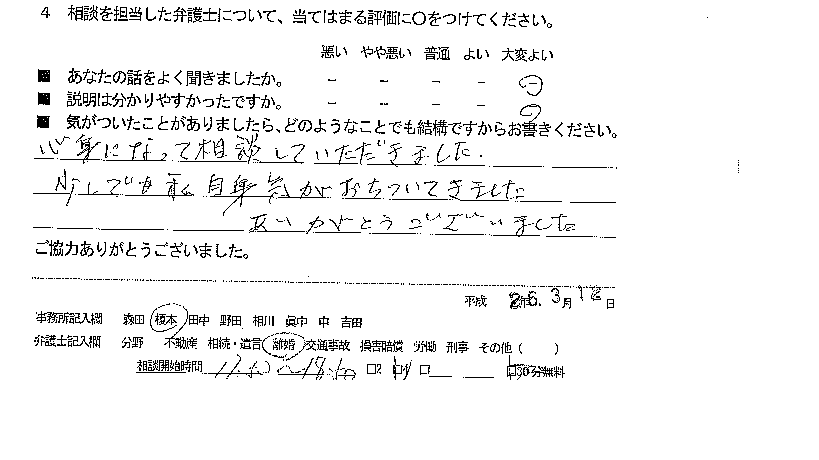 4 相談を担当した弁護士について、当てはまる評価に〇をつけてください。
悪い やや悪い 普通 よい 大変よい
■ あなたの話をよく聞きましたか。 － － － － －
■ 説明は分かりやすかったですか。 － － － －
■ 気がついたことがありましたら、どのようなことでも結構ですからお書きください。
心身になって相談していただきました.
少しでも私自身気がおちついてきました
ありがとうございました
ご協力ありがとうございました。
平成 26. 3月 日
事務所記入欄 森田 榎本 田中 野田 相川 眞中 中 吉田
弁護士記入欄 分野 不動産 相続・遺言 離婚 交通事故 損害賠償 労働 刑事 その他（ ）
相談開始時間 17: ～18: □2 □ 30分無料